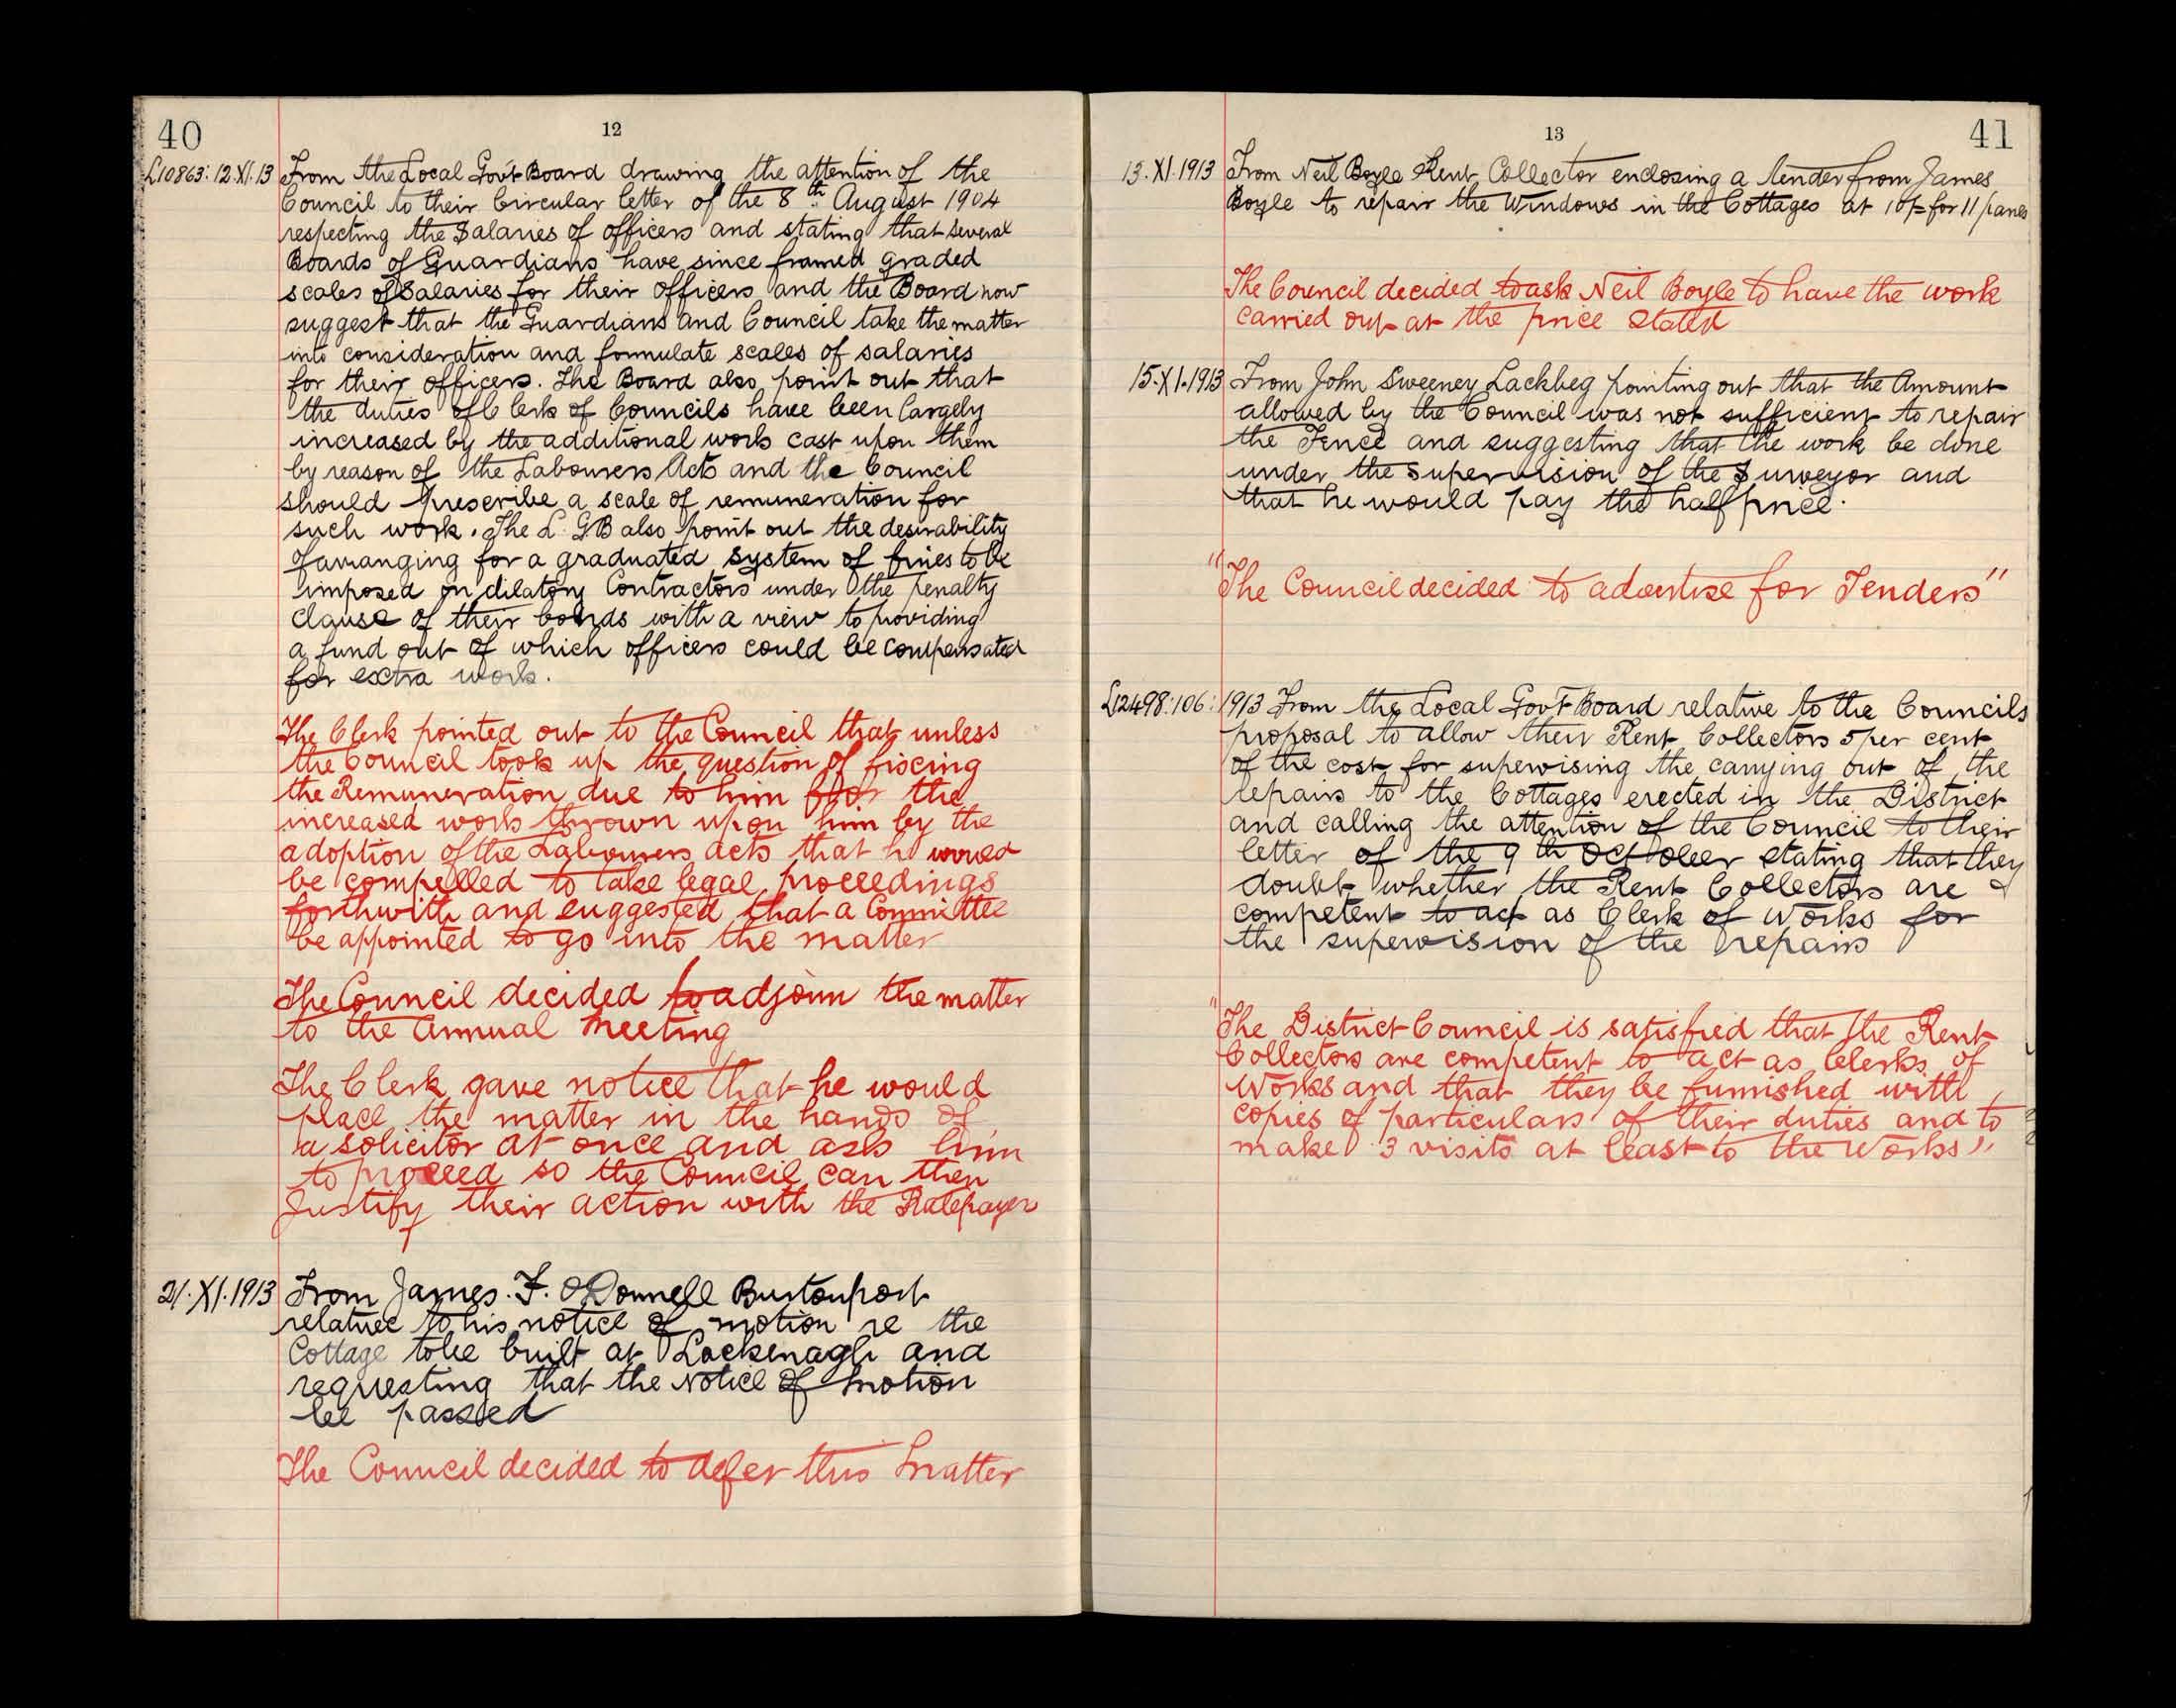 40
12
L10863: 12.XI.13 From the Local Govt Board drawing the attention of the
Council to their Circular letter of the 8th August 1904
respecting the Salaries of officers and stating that several
Boards of Guardians have since framed graded
scales of Salaries for their officers and the Board now
suggest that the Guardians and Council take the matter
into consideration and formulate scales of salaries
for their officers. The Board also point out that
the duties of Clerk of Councils have been largely
increased by the additional work cast upon them
by reason of the Labourers Acts and the Council
should prescribe a scale of remuneration for
such work. The L.G.B also point out the desirability
of arranging for a graduated system of fines to be
imposed on dilatory Contractors under the penalty
clause of their bonds with a view to providing
a fund out of which officers could be compensated
for extra work.
The Clerk pointed out to the Council that unless
the Council took up the question of fixing
the Remuneration due to him for the
increased work thrown upon him by the
adoption of the Labourers acts that he would
be compelled to take legal proceedings
forthwith and suggested that a Committee
be appointed to go into the matter
The Council decided to adjourn the matter
to the Annual Meeting
The Clerk gave notice that he would
place the matter in the hands of
a solicitor at once and ask him
to proceed so the Council can then
Justify their action with the Ratepayers
21.XI.1913 From James. F. O'Donnell Burtonport
relative to his notice of motion re the
Cottage to be built at Lackenagh and
requesting that the Notice of Motion
be passed
The Council decided to defer this matter
13
41
13.XI.1913 From Neil Boyle Rent Collector enclosing a tender from James
Boyle to repair the Windows in the Cottages at 10/= for 11 panes
The Council decided to ask Neil Boyle to have the work
carried out at the price stated
15.XI.1913 From John Sweeney Lackbeg pointing out that the Amount
allowed by the Council was not sufficient to repair
the Fence and suggesting that the work be done
under the supervision of the Surveyor and
that he would pay the half price.
"The Council decided to advertise for Tenders"
L12498:106:1913 From the Local Govt Board relative to the Councils
proposal to allow their Rent Collectors 5 per cent
of the cost for supervising the carrying out of the
repairs to the Cottages erected in the District
and calling the attention of the Council to their
letter of the 9th October stating that they
doubt whether the Rent Collectors are
competent to act as Clerk of Works for
the supervision of the repairs
"The District Council is satisfied that the Rent
Collectors are competent to act as Clerks of
Works and that they be furnished with
copies of particulars of their duties and to
make 3 visits at least to the Works"